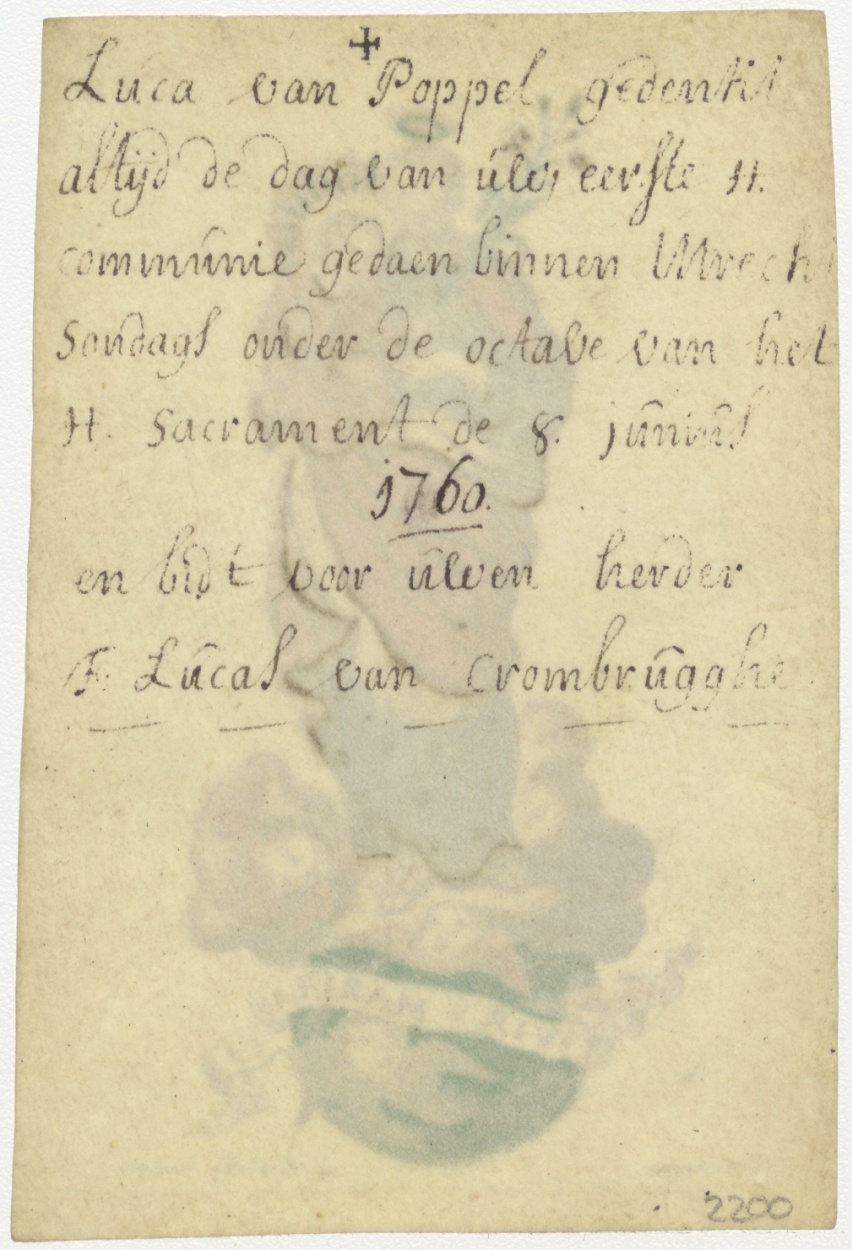 +
Luca van Poppel gedentit
altijd de dag van ulw eerste H.
communie gedaen binnen Utrecht
Sondags onder de octave van het
H. Sacrament de 8. junius
1760.
en bidt voor ulwen herder
F. Lucas van Crombrugghe
2200